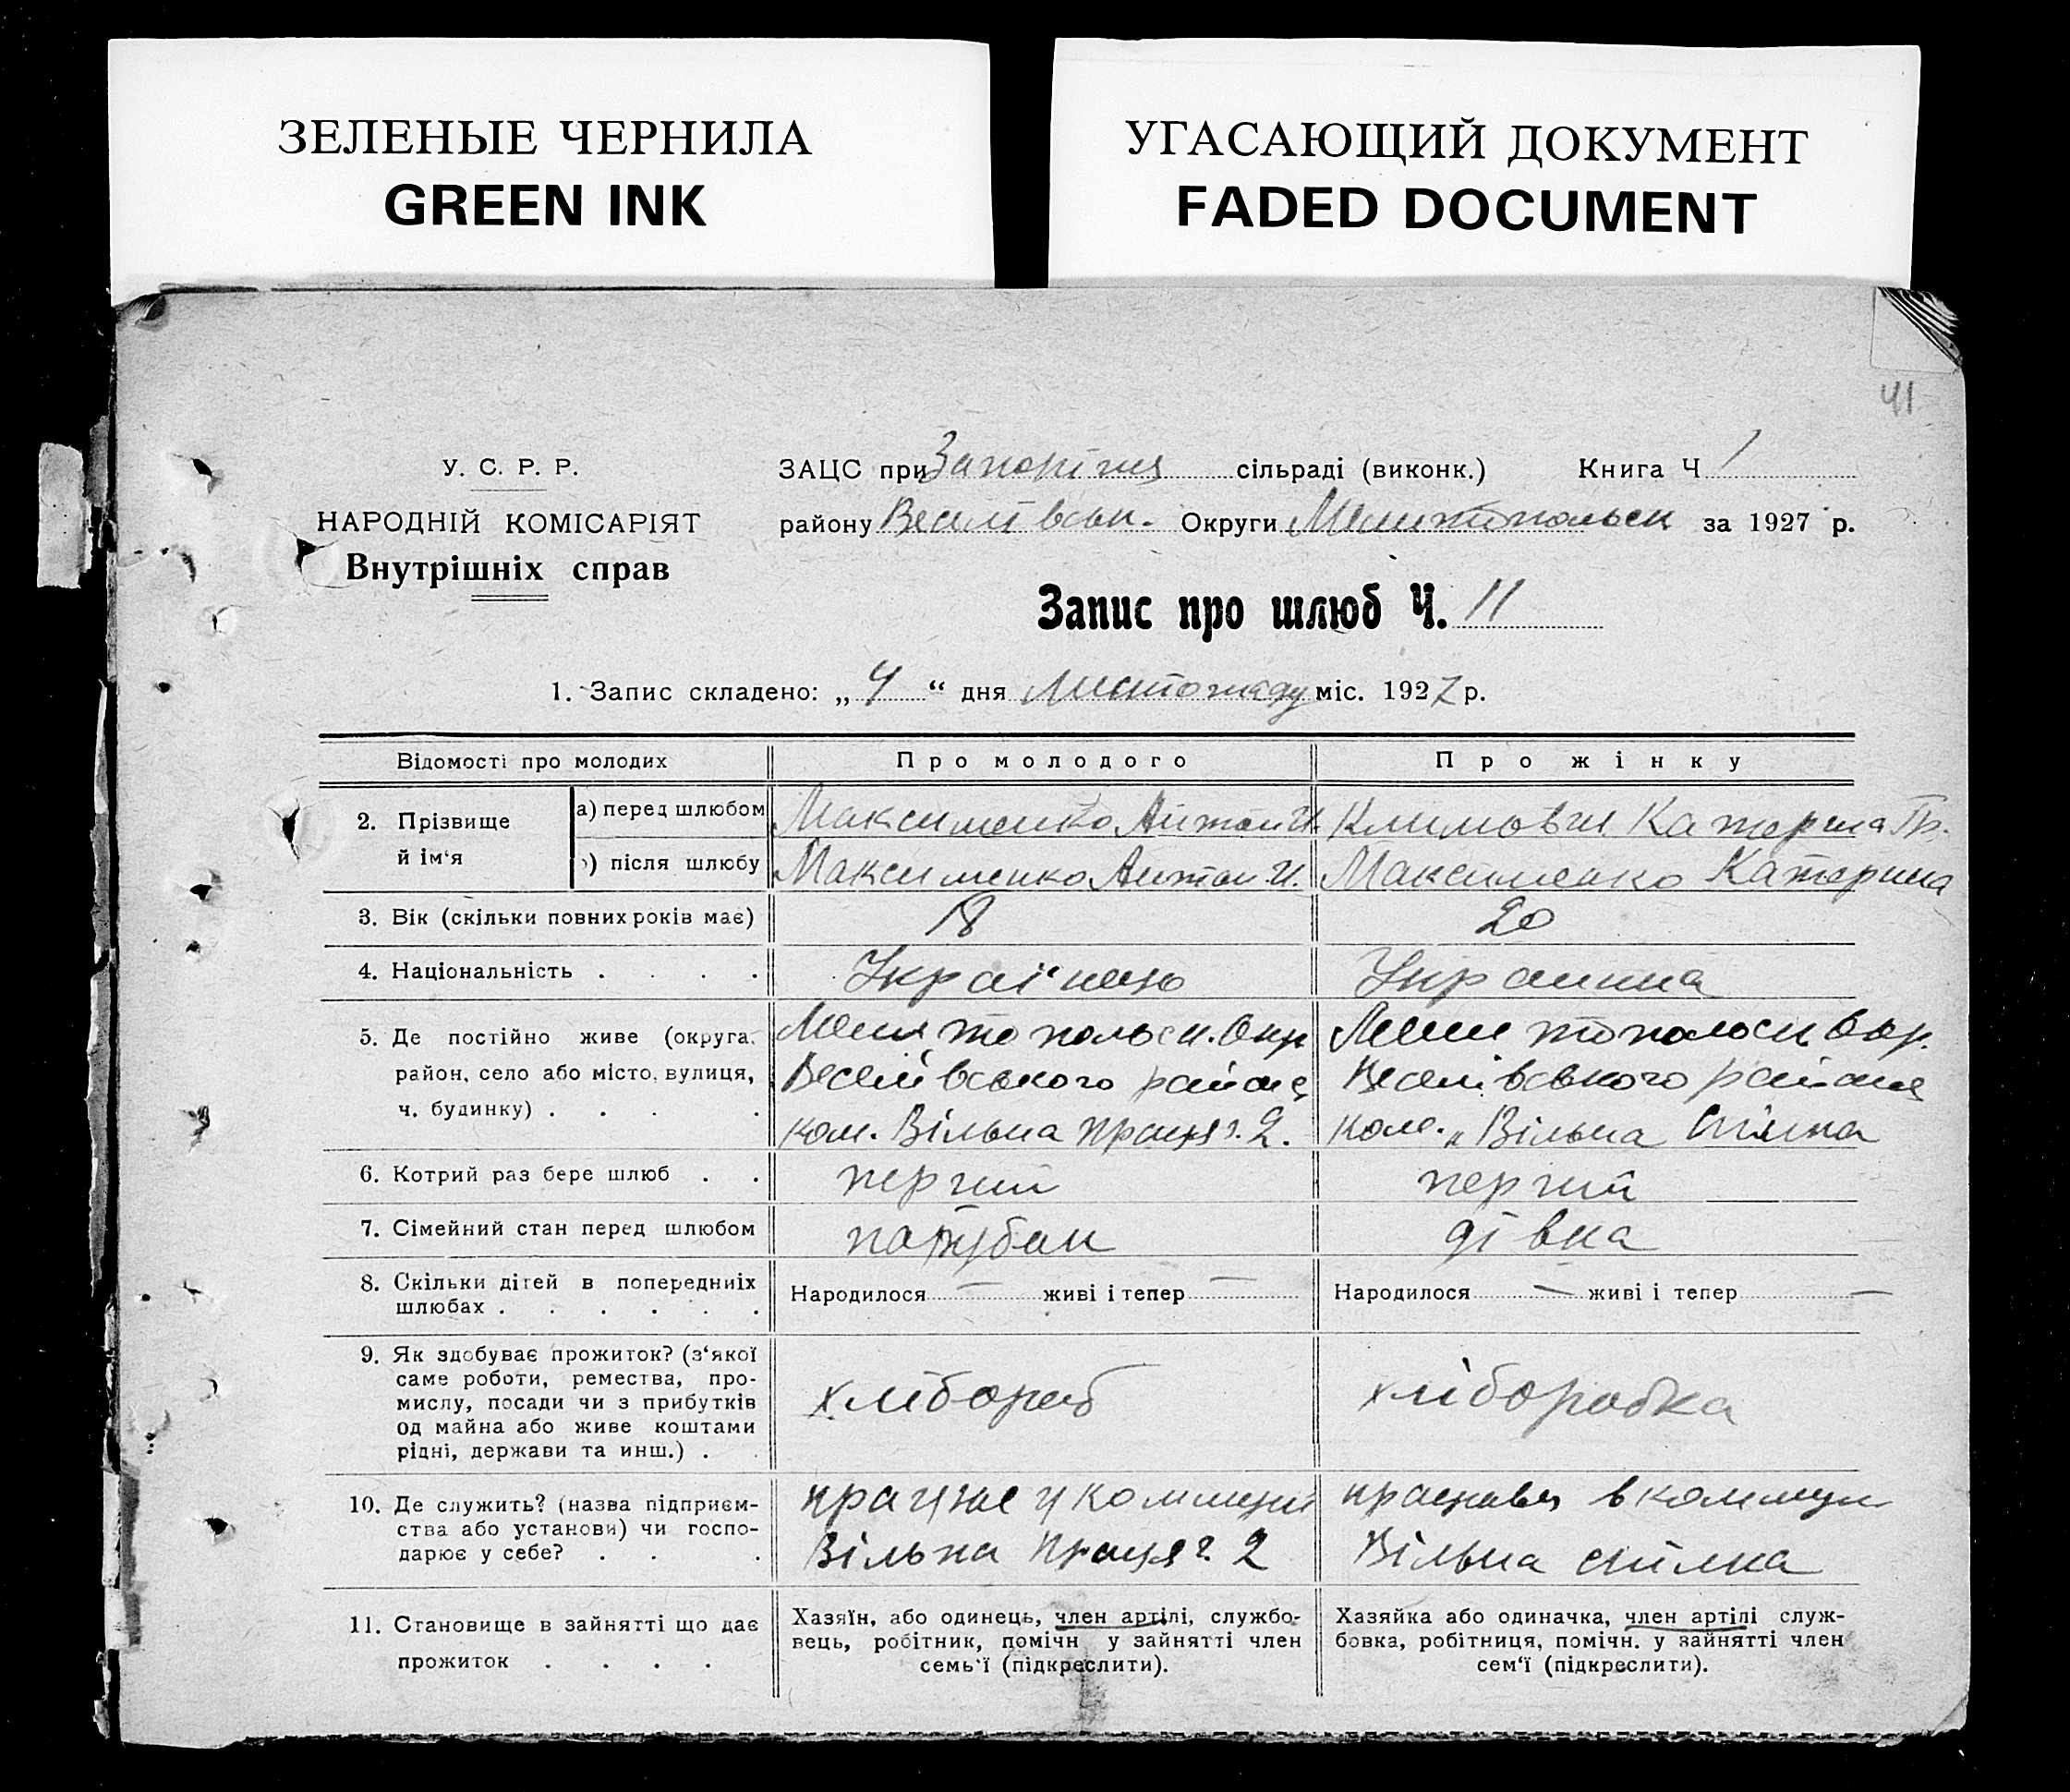 ЗЕЛЕНЫЕ ЧЕРНИЛА
GREEN INK
УГАСАЮЩИЙ ДОКУМЕНТ
FADED DOCUMENT
41
У. С. Р. Р.
НАРОДНІЙ КОМІСАРІЯТ
Внутрішніх справ
ЗАЦС при сільраді (виконк.) Книга Ч 1
району Веселівськ. Округи Мелитопольск за 1927 р.
Запис про шлюб Ч. 11
1. Запис складено: „ 4 “ дня Листопаду міс. 1927 р.
Відомості про молодих
Про молодого
Про жінку
2. Прізвище й ім‘я
а) перед шлюбом Максименко Антон И. Климович Катерина Гр.
) після шлюбу Максименко Антон И. Максименко Катерина
3. Вік (скільки повних років має) 18 20
4. Національність . . . . Українець Украинка
5. Де постійно живе (округа, Мелитопольск. Окр Мелитопольск Окр.
район, село або місто, вулиця, Веселівського района Веселівського района
ч. будинку) . . . . ком. Вільна праця ч. 2. ком. „Вільна Спілка
6. Котрий раз бере шлюб . . перший перший
7. Сімейний стан перед шлюбом парубок дівка
8. Скільки дітей в попередніх шлюбах . . . . . .
Народилося — живі і тепер —
Народилося — живі і тепер —
9. Як здобуває прожиток? (з‘якої
саме роботи, ремества, про-
мислу, посади чи з прибутків
од майна або живе коштами
рідні, держави та инш.) .
хлібороб
хліборобка
10. Де служить? (назва підприєм-
ства або установи) чи госпо-
дарює у себе? . . .
працює у коммуні
Вільна Праця ч. 2
в коммун
Вільна спілка
11. Становище в зайнятті що дає
прожиток . . . .
Хазяїн, або одинець, член артілі, службо-
вець, робітник, помічн у зайнятті член
семь‘ї (підкреслити).
Хазяйка або одиначка, член артілі служ-
бовка, робітниця, помічн. у зайнятті член
сем‘ї (підкреслити).